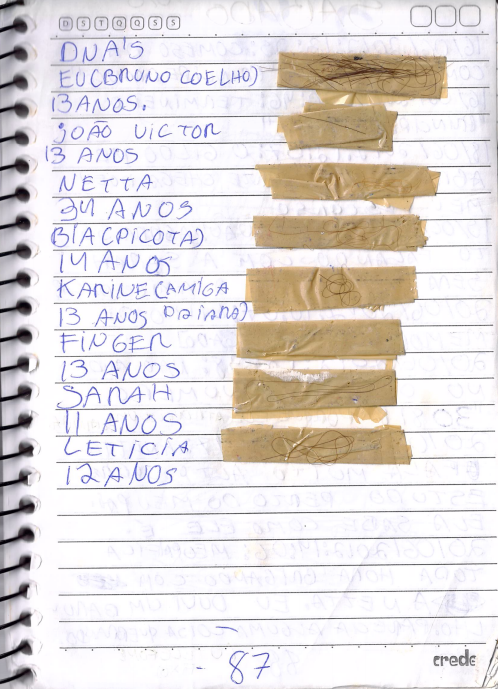 D S T Q Q S S
DNA'S
EU(BRUNO COELHO)
13 ANOS.
JOÃO VICTOR
13 ANOS
NETTA
34 ANOS
BIA(PICOTA)
14 ANOS
KARINE(AMIGA
13 ANOS DAIANA)
FINGER
13 ANOS
SARAH
11 ANOS
LETICIA
12 ANOS
- 87
credeal